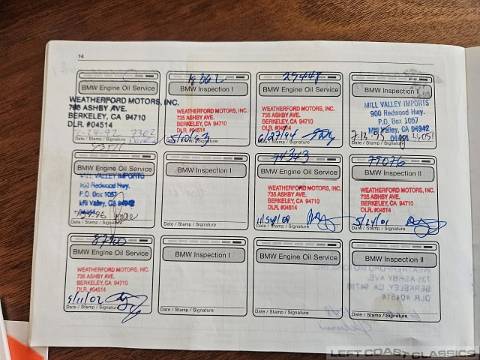 14
BMW Engine Oil Service
WEATHERFORD MOTORS, INC.
735 ASHBY AVE.
BERKELEY, CA 94710
DLR. #04514
BMW Inspection I
WEATHERFORD MOTORS, INC.
735 ASHBY AVE.
BERKELEY, CA 94710
DLR. #04514
Date / Stamp / Signature
BMW Engine Oil Service
WEATHERFORD MOTORS, INC.
735 ASHBY AVE.
BERKELEY, CA 94710
DLR. #04514
Date / Stamp / Signature
BMW Inspection II
MILL VALLEY IMPORTS
900 Redwood Hwy.
P.O. Box 1057
Mill Valley, CA 94942
BMW Engine Oil Service
MILL VALLEY IMPORTS
900 Redwood Hwy.
P.O. Box 1057
Mill Valley, CA
Date / Stamp / Signature
BMW Inspection I
Date / Stamp / Signature
BMW Engine Oil Service
WEATHERFORD MOTORS, INC.
735 ASHBY AVE.
BERKELEY, CA 94710
DLR. #04514
Date / Stamp / Signature
77076
BMW Inspection II
WEATHERFORD MOTORS, INC.
735 ASHBY AVE.
BERKELEY, CA 94710
DLR. #04514
Date / Stamp / Signature
BMW Engine Oil Service
WEATHERFORD MOTORS, INC.
735 ASHBY AVE.
BERKELEY, CA 94710
DLR. #04514
Date / Stamp / Signature
BMW Inspection I
Date / Stamp / Signature
BMW Engine Oil Service
Date / Stamp / Signature
BMW Inspection II
Date / Stamp / Signature
LEFT COAST CLASSICS